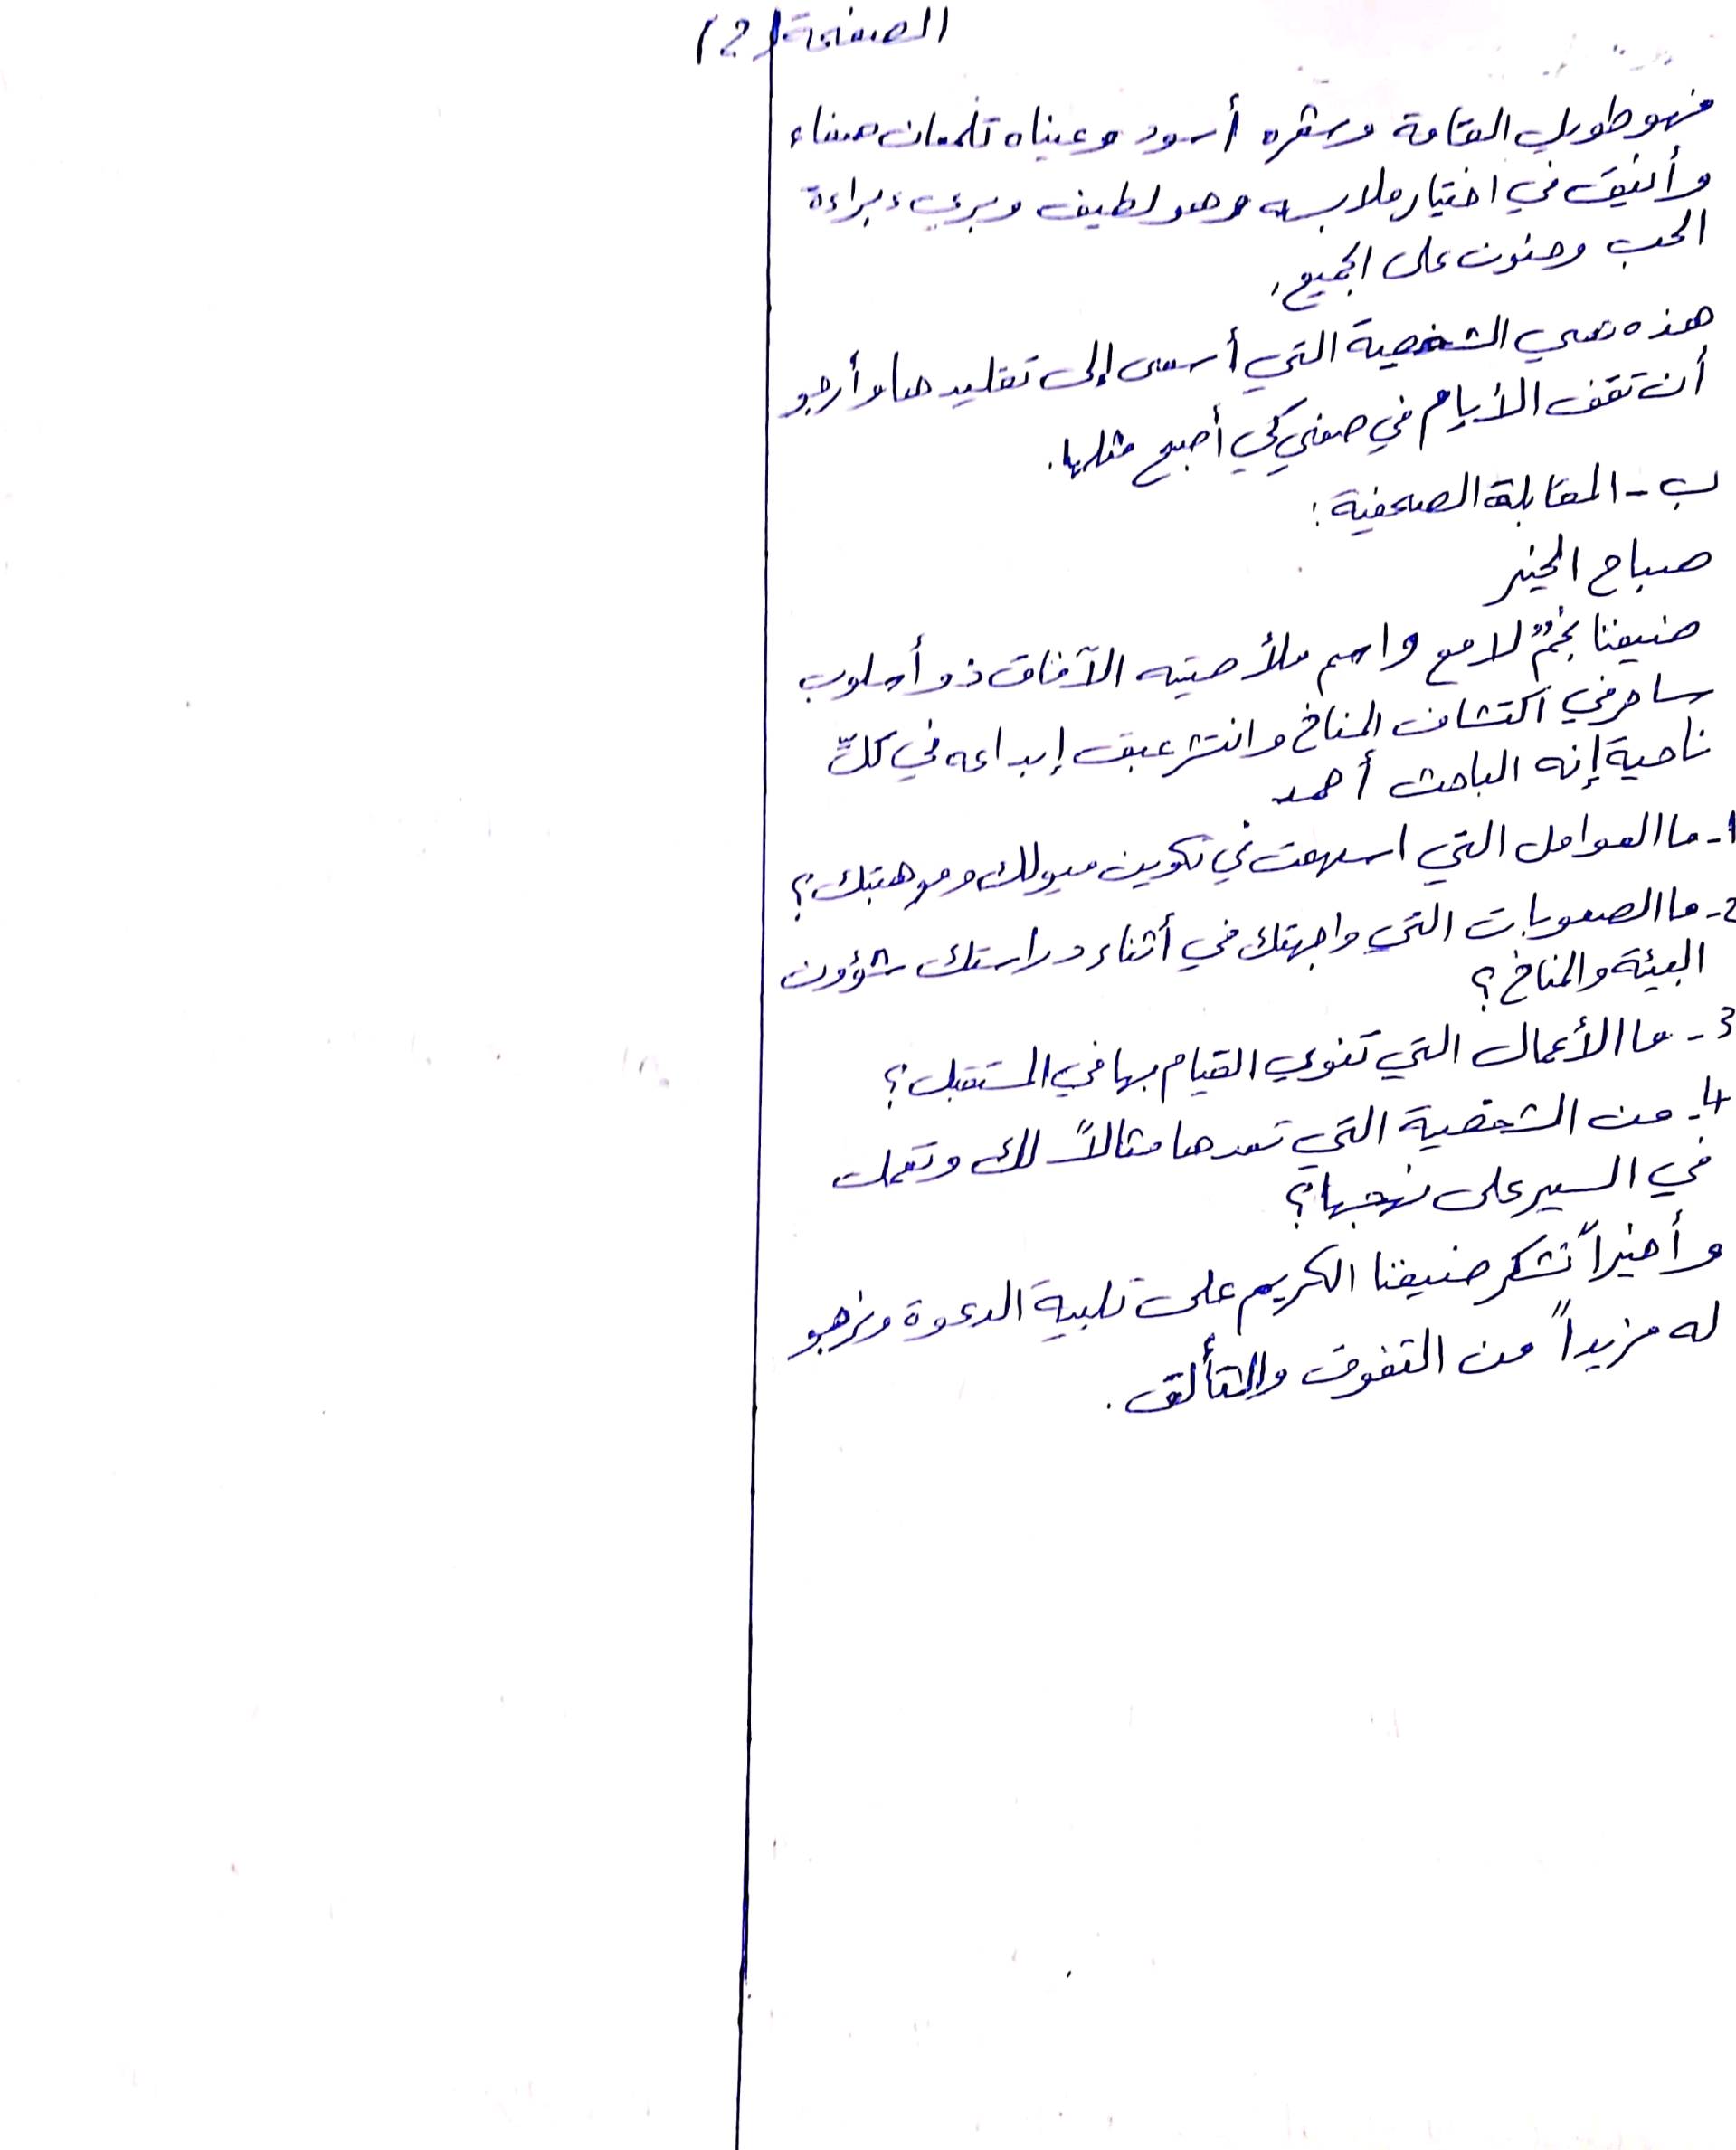 الصفحة (2)
فهو طويل القامة وشعره أسود وعيناه تلمعان صفاء
وأنيق في اختيار ملابسه وهو لطيف وبريء براءة
الحب وحنون على الجميع.
هذه هي الشخصية التي أسعى إلى تقليدها وأرجو
أن تقف الأيام في صفي كي أصبح مثلها.
ب - المقابلة الصحفية:
صباح الخير
ضيفنا نجمٌ لامع واسم ملأ صيته الآفاق ذو أسلوب
ساحر في اكتشاف المناخ وانتشر عبق إبداعه في كلِّ
ناحية إنه الباحث أحمد
1- ما العوامل التي اسهمت في تكوين ميولك وموهبتك؟
2- ما الصعوبات التي واجهتك في أثناء دراستك شؤون
البيئة والمناخ؟
3- ما الأعمال التي تنوي القيام بها في المستقبل؟
4- من الشخصية التي تعدها مثالاً لك وتعمل
في السير على نهجها؟
وأخيراً نشكر ضيفنا الكريم على تلبية الدعوة ونرجو
له مزيداً من التفوق والتألق.